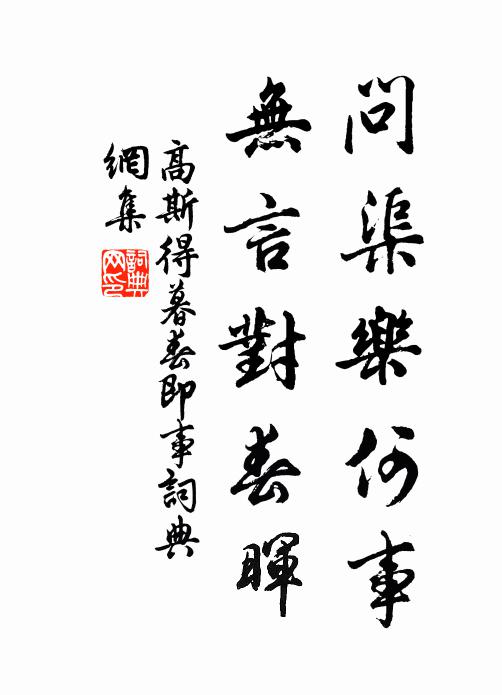 問渠樂何事
無言對春暉
高斯得暮春即事詞典
網集
詞典
网印